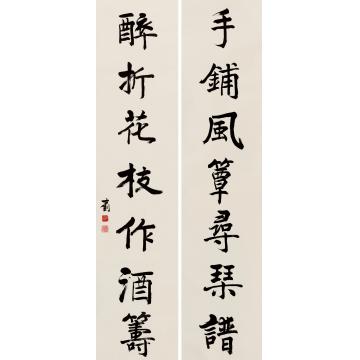 手鋪風簟尋琴譜
醉折花枝作酒籌